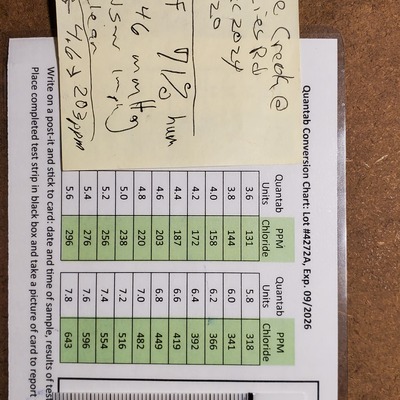 Quantab Conversion Chart: Lot #4272A, Exp. 09/2026
Creek @
Rd
2024
20
71% hum
46 mmHg
4.6 → 203 ppm
Quantab Units PPM Chloride Quantab Units PPM Chloride
3.6 131 5.8 318
3.8 144 6.0 341
4.0 158 6.2 366
4.2 172 6.4 392
4.4 187 6.6 419
4.6 203 6.8 449
4.8 220 7.0 482
5.0 238 7.2 516
5.2 256 7.4 554
5.4 276 7.6 596
5.6 296 7.8 643
Write on a post-it and stick to card: date and time of sample, results of test
Place completed test strip in black box and take a picture of card to report